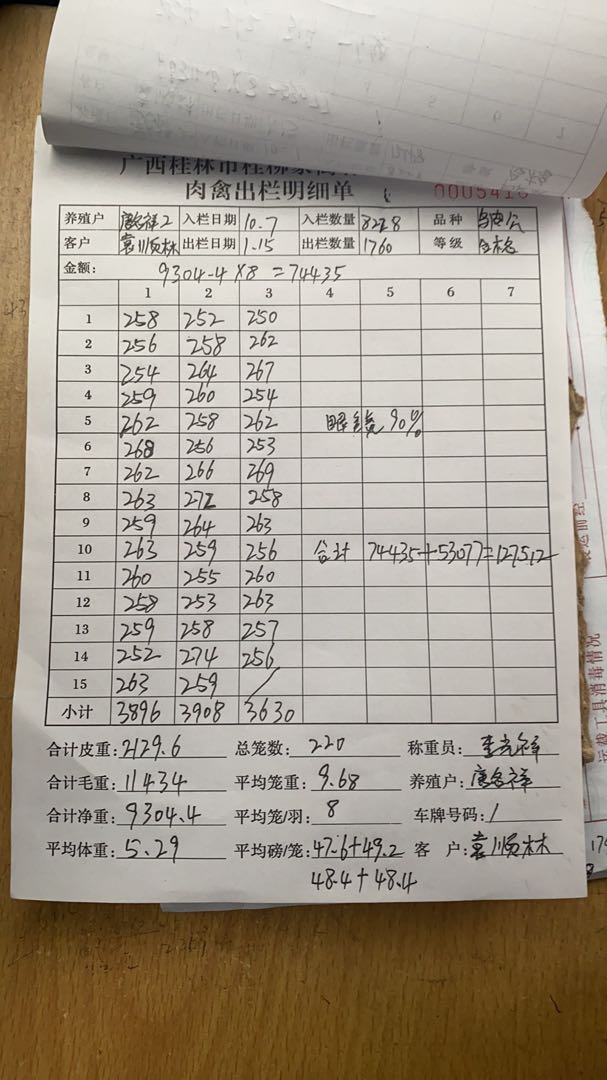 广西桂林市桂柳家禽
肉禽出栏明细单 0005416
养殖户 唐名祥2 入栏日期 10.7 入栏数量 8228 品种
客户 袁顺林 出栏日期 1.15 出栏数量 1760 等级 合格
金额: 9304.4×8=74435
1 2 3 4 5 6 7
1 258 252 250
2 256 258 262
3 254 264 267
4 259 260 254
5 262 258 262 90%
6 268 256 253
7 262 266 269
8 263 272 258
9 259 264 263
10 263 259 256 合计 74435+53077=127512
11 260 255 260
12 258 253 263
13 259 258 257
14 252 274 256
15 263 259 /
小计 3896 3908 3630
合计皮重: 2129.6 总笼数: 220 称重员:
合计毛重: 11434 平均笼重: 9.68 养殖户: 唐名祥
合计净重: 9304.4 平均笼/羽: 8 车牌号码: /
平均体重: 5.29 平均磅/笼: 47.6+49.2 客 户: 袁顺林
48.4+48.4